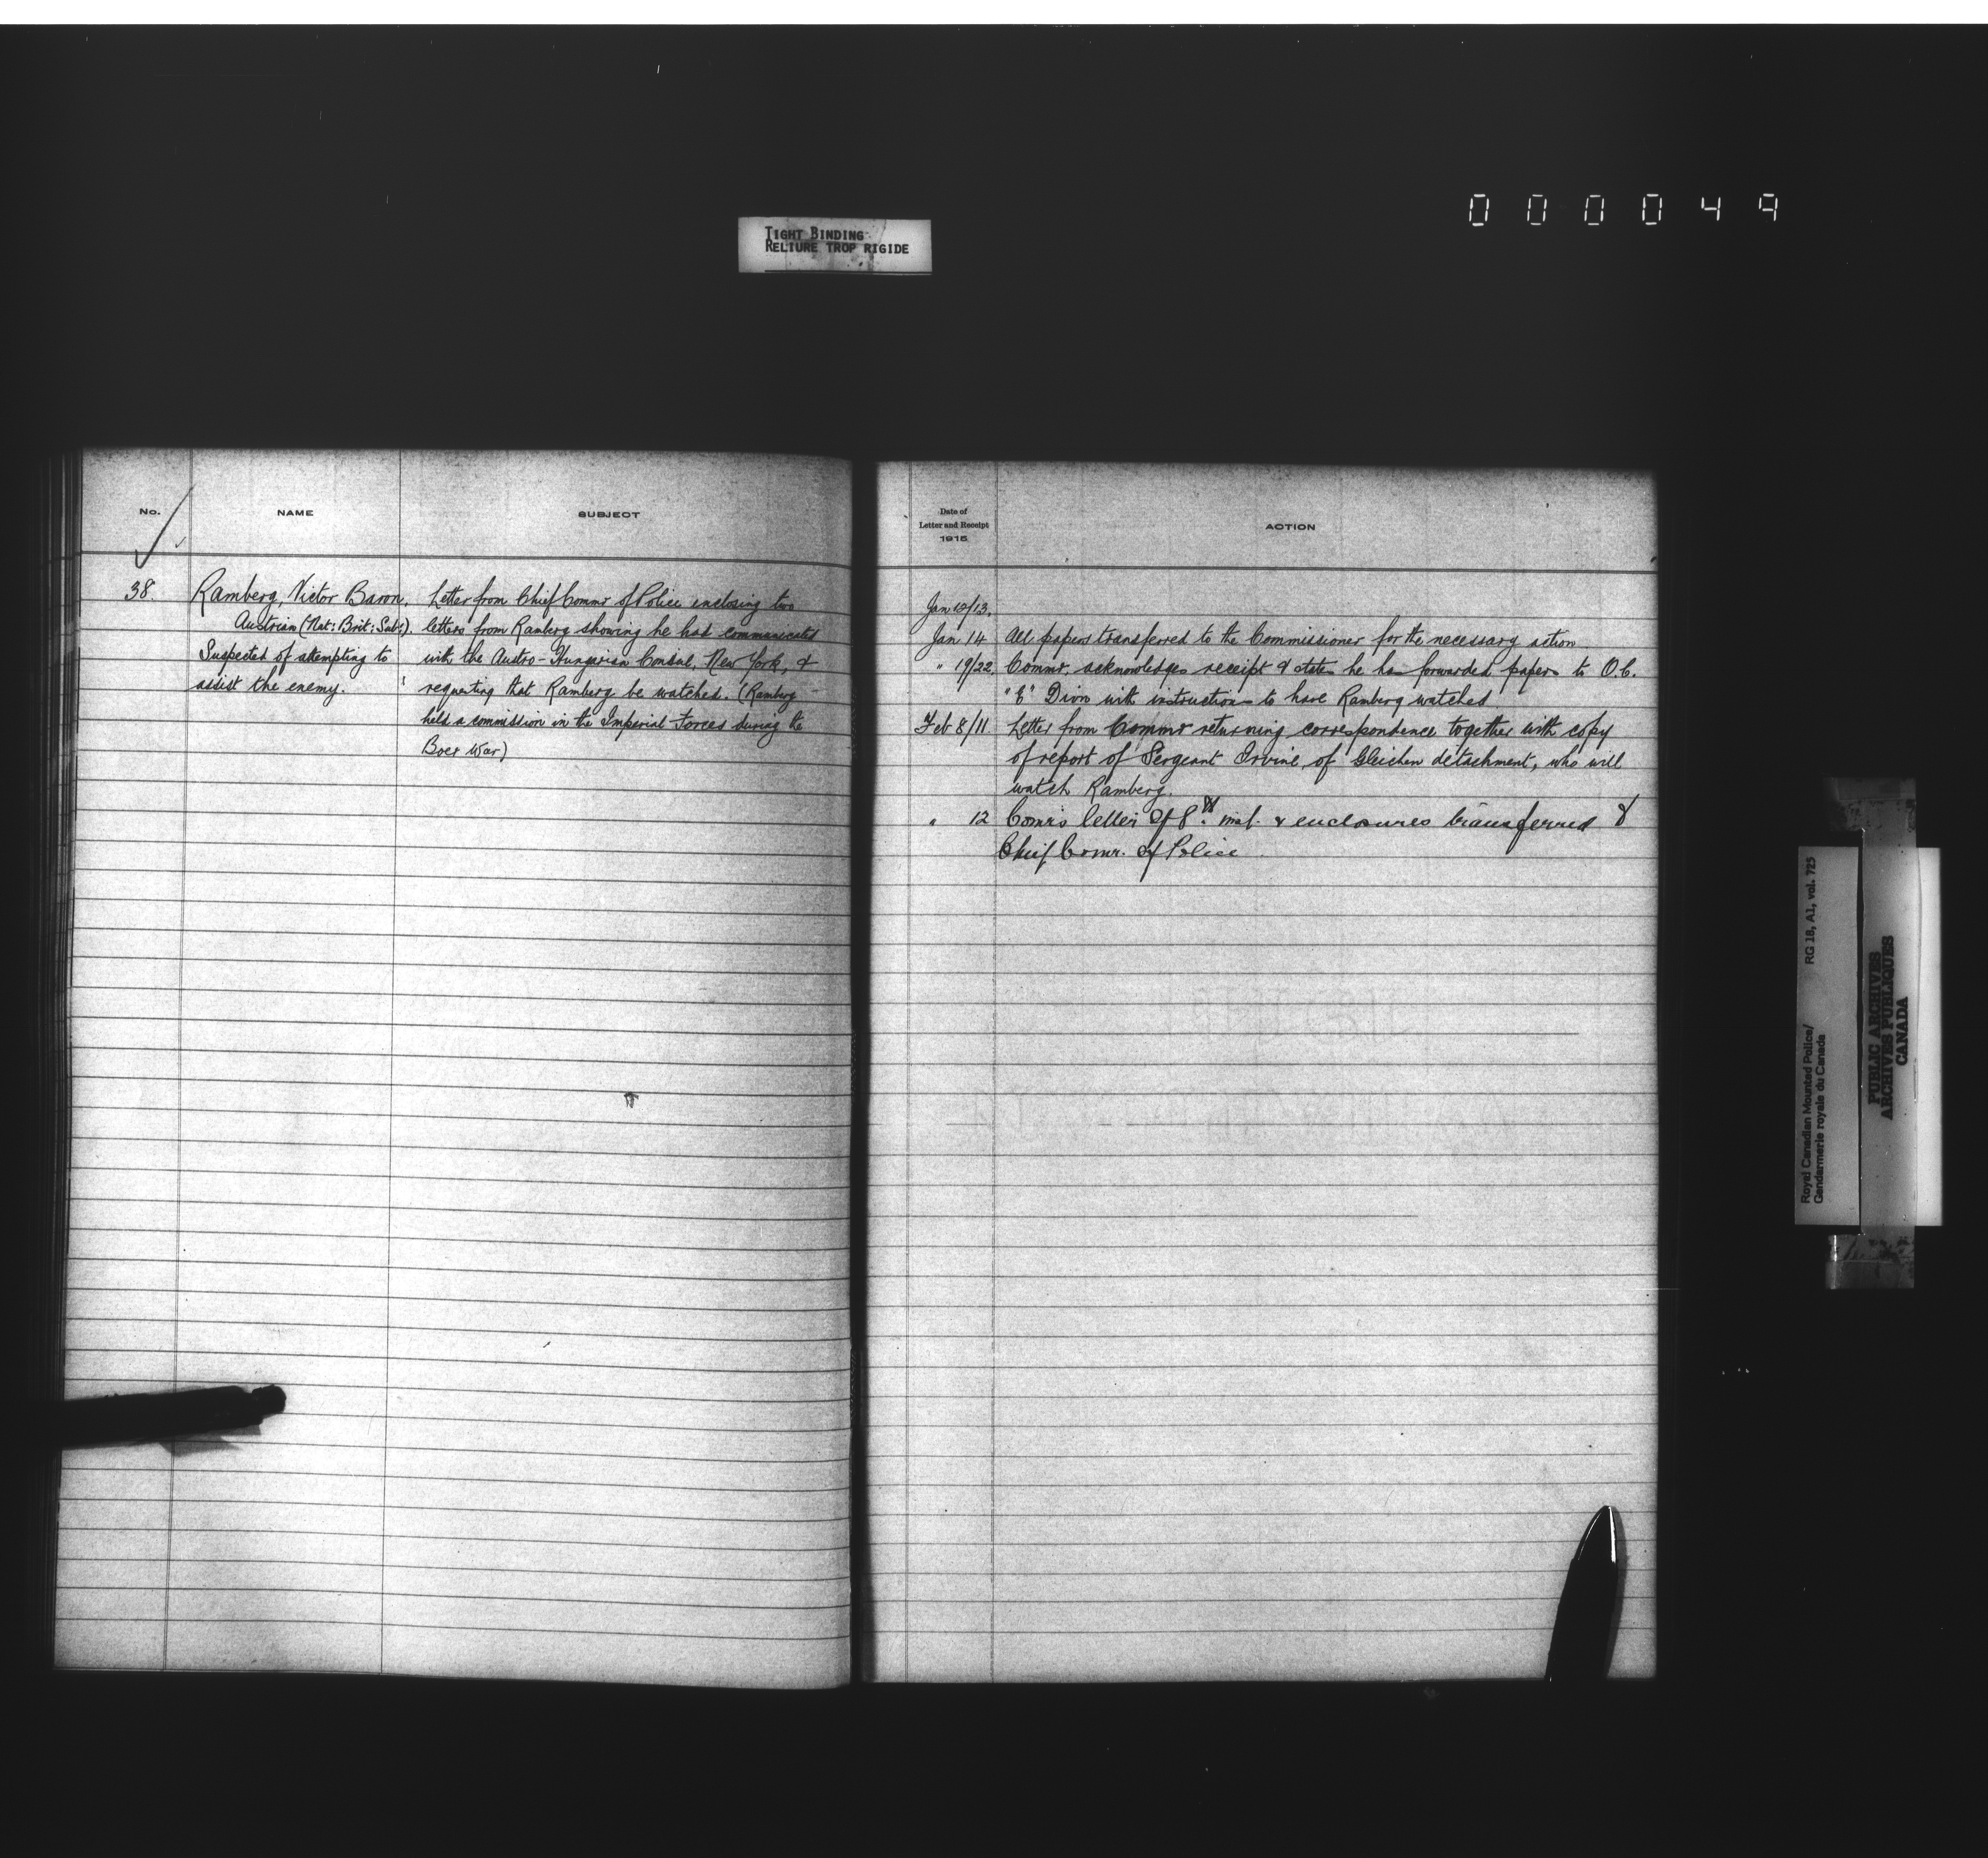 000049
TIGHT BINDING
RELIURE TROP RIGIDE
No.
NAME
SUBJECT
38.
Ramberg, Victor Baron.
Austrian (Nat: Brit: Subt.).
Suspected of attempting to
assist the enemy.
Letter from Chief Commr of Police enclosing two
letters from Ramberg showing he had communicated
with the Austro-Hungarian Consul, New York, &
requesting that Ramberg be watched. (Ramberg
held a commission in the Imperial Forces during the
Boer War)
Date of
Letter and Receipt
1915
ACTION
Jan 12/13.
Jan 14 All papers transferred to the Commissioner for the necessary action
" 19/22. Commr. acknowledges receipt & states he has forwarded papers to O.C.
"E" Divn with instructions to have Ramberg watched
Feb 8/11. Letter from Commr returning correspondence together with copy
of report of Sergeant Irvine, of Gleichen detachment, who will
watch Ramberg.
" 12 Comr's letter of 8th inst. & enclosures transferred to
Chief Comr. of Police.
Royal Canadian Mounted Police/ RG 18, A1, vol. 725
Gendarmerie royale du Canada
PUBLIC ARCHIVES
ARCHIVES PUBLIQUES
CANADA